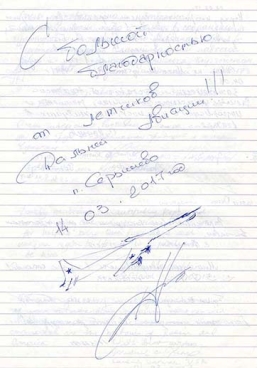 С большой
благодарностью
от летчиков
Дальней Авиации!!!
п. Серышево
14 03. 2017 год